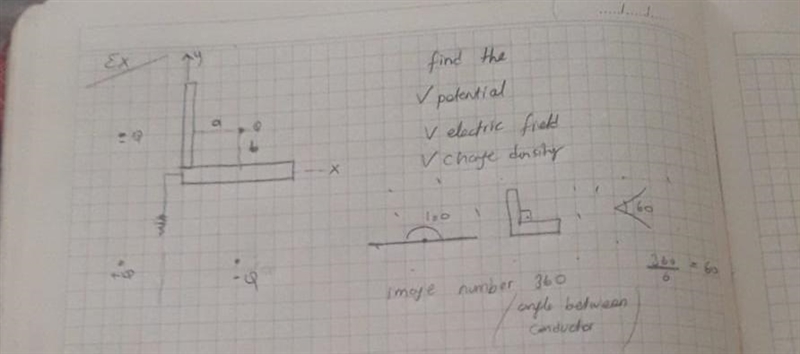 Ex
y
find the
√ potential
a
Q
- Q
b
√ electric field
√ charge density
x
180
60
+Q
- Q
image number 360
angle between
conductor
360
6
= 60